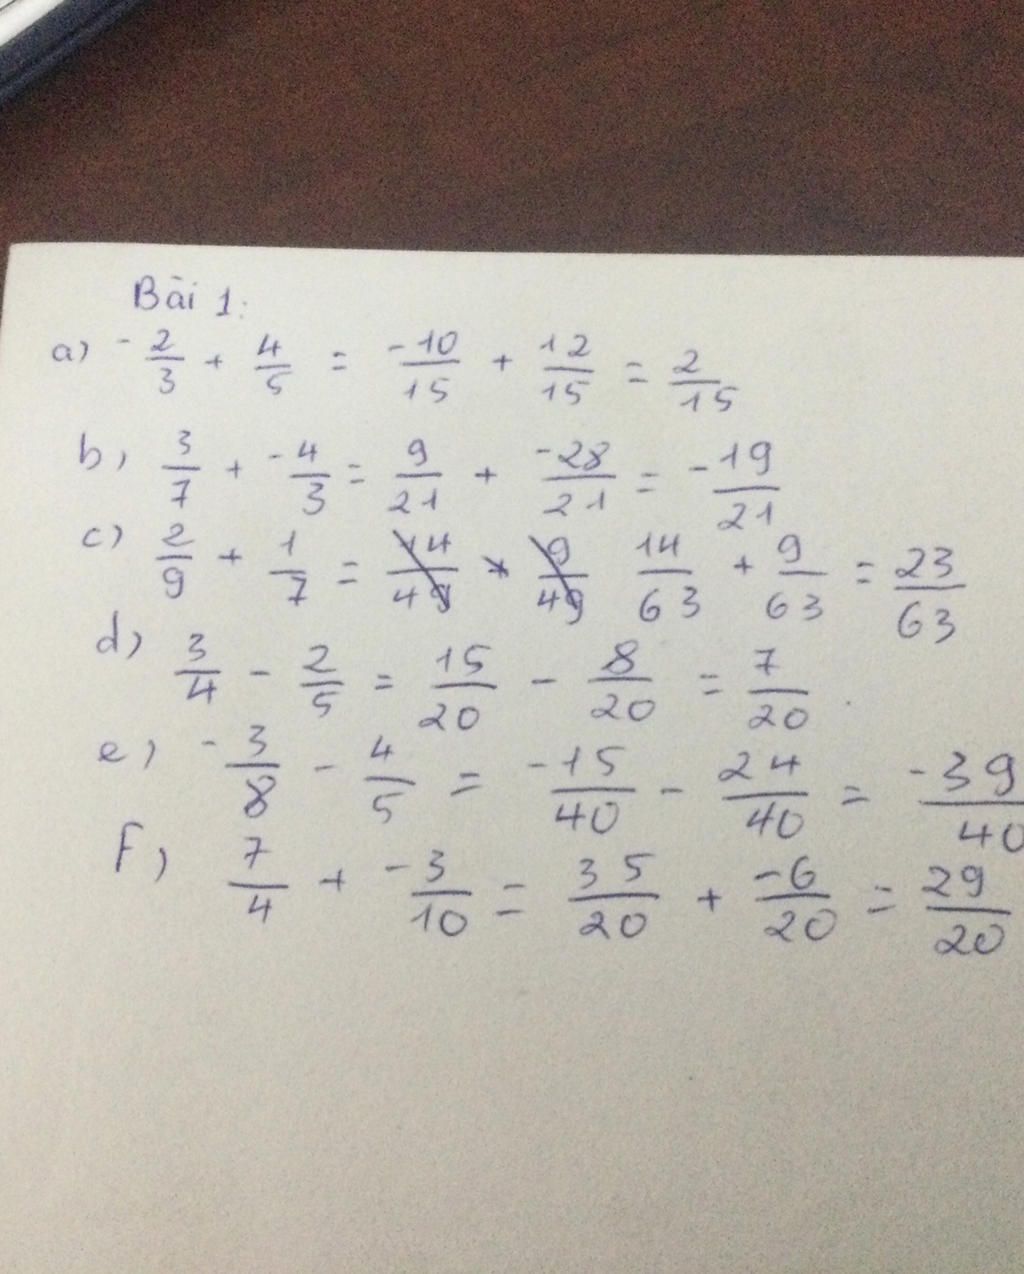 Bài 1:
a) -2/3 + 4/5 = -10/15 + 12/15 = 2/15
b) 3/7 + -4/3 = 9/21 + -28/21 = -19/21
c) 2/9 + 1/7 = 14/49 + 9/49 14/63 + 9/63 = 23/63
d) 3/4 - 2/5 = 15/20 - 8/20 = 7/20
e) -3/8 - 4/5 = -15/40 - 24/40 = -39/40
F) 7/4 + -3/10 = 35/20 + -6/20 = 29/20